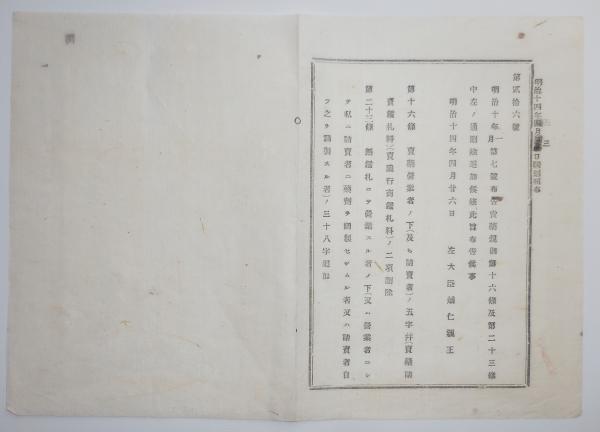 第貳拾六號
明治十年一月第七號布告賣藥規則第十六條及第二十三條
中左ノ通刪除追加候條此旨布告候事
明治十四年四月廿六日
左大臣熾仁親王
第十六條 賣藥營業者ノ下(及ヒ請賣者)ノ五字幷(賣藥請
賣鑑札料)(賣藥行商鑑札料)ノ二項刪除
第二十三條 無鑑札ニテ營業スル者ノ下(又ハ營業者ニシ
テ私ニ請賣者ニ藥劑ヲ調製セシムル者又ハ請賣者自
ラ之ヲ調製スル者)ノ三十八字追加